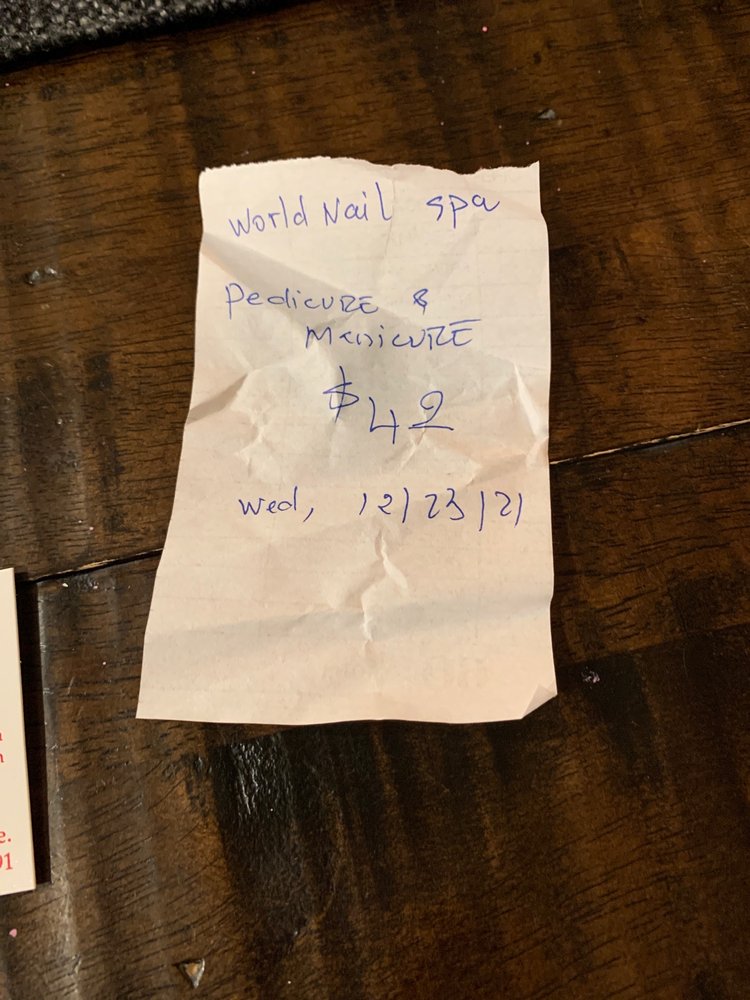 World Nail spa
Pedicure &
Manicure
$42
Wed, 12/23/21
e.
91